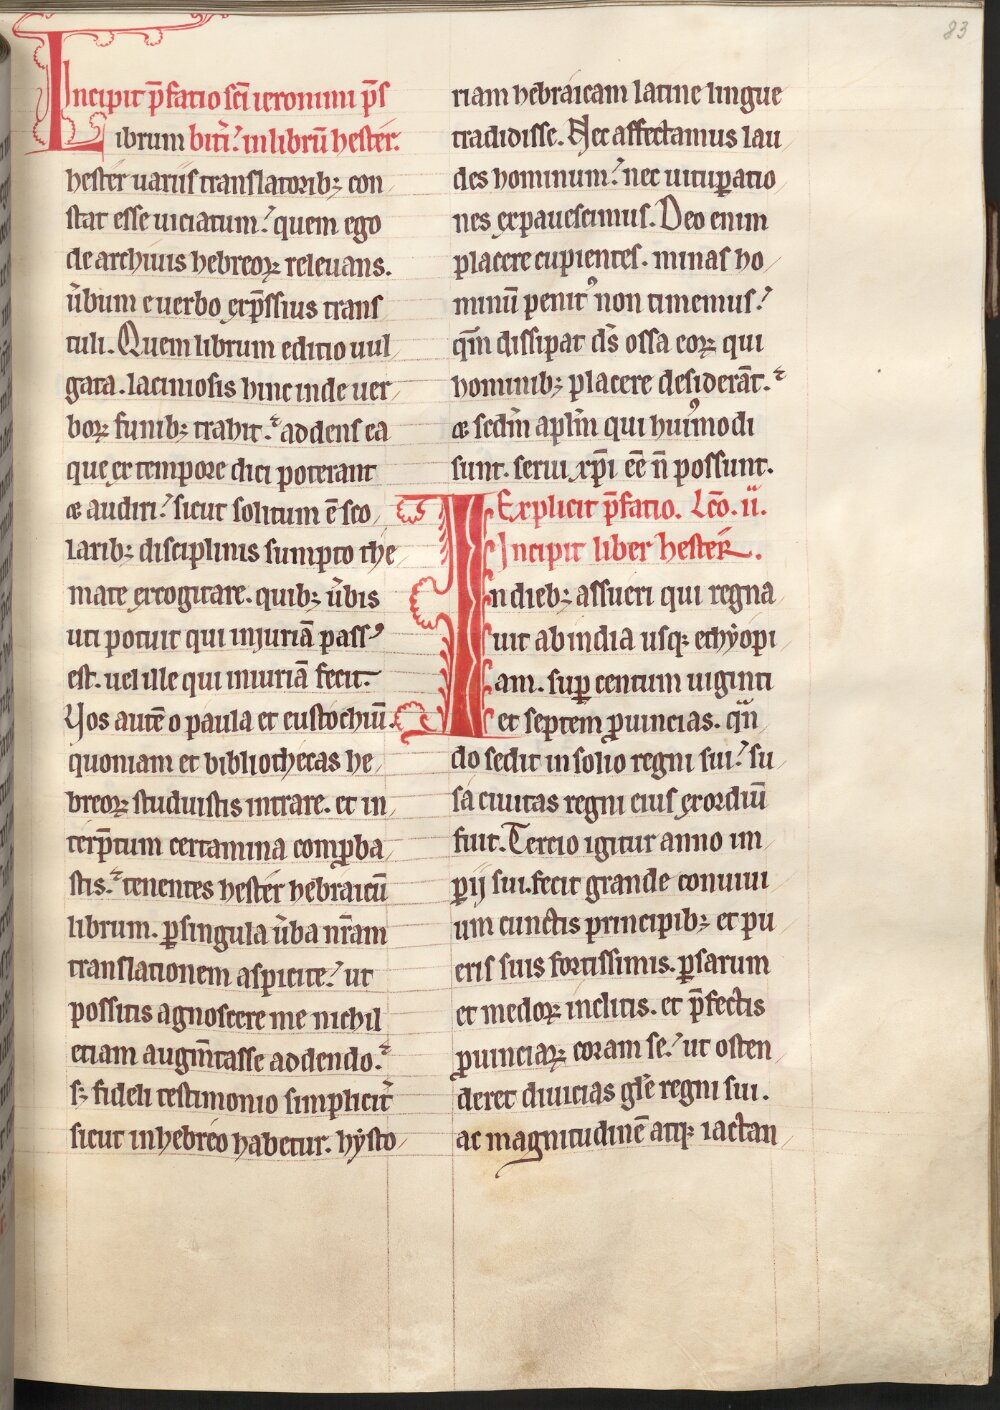 83
Incipit p̄fatio sc̄i ieronimi p̄s
Librum bit̄i. in librū hester.
hester uariis translatorib; con
stat esse uiciatum. quem ego
de archiuis hebreoꝝ releuans.
ūbum e uerbo exp̄ssius trans
tuli. Quem librum editio uul
gata. laciniosis hinc inde uer
boꝝ funib; trahit. addens ea
que ex tempore dici poterant
æ audiri. sicut solitum ē sco
larib; disciplinis sumpto the
mate excogitare. quib; ūbis
uti potuit qui injuriā passꝰ
est. uel ille qui iniuriā fecit.
Uos autē o paula et eustochiū.
quoniam et bibliothecas he
breoꝝ studuistis intrare. et in
terp̄tum certamina comꝓba
stis. tenentes hester hebraicū
librum. ꝑ singula ūba nr̄am
translationem aspicite. ut
possitis agnoscere me nichil
etiam augm̄tasse addendo.
s; fideli testimonio simplicit̄
sicut in hebreo habetur. hysto
riam hebraicam latine lingue
tradidisse. Nec affectamus lau
des hominum. nec uituꝑatio
nes expauescimus. Deo enim
placere cupientes. minas ho
minū penitꝰ non timemus.
qm̄ dissipat ds̄ ossa eoꝝ qui
hominib; placere desiderāt.
æ sedm̄ aplm̄ qui huiꝰmodi
sunt. serui xp̄i ēē n̄ possunt.
Explicit p̄fatio. Lc̄o. ii.
Incipit liber hester.
In dieb; assueri qui regna
uit ab india usqꝫ ethyopi
am. suꝑ centum uiginti
et septem ꝓuincias. qn̄
do sedit in solio regni sui. su
sa ciuitas regni eius exordiū
fuit. Tercio igitur anno im
ꝑij sui. fecit grande conuiui
um cunctis principib; et pu
eris suis fortissimis. ꝑsarum
et medoꝝ inclitis. et p̄fectis
ꝓuinciaꝝ coram se. ut osten
deret diuicias gl̄e regni sui.
ac magnitudinē atqꝫ iactan